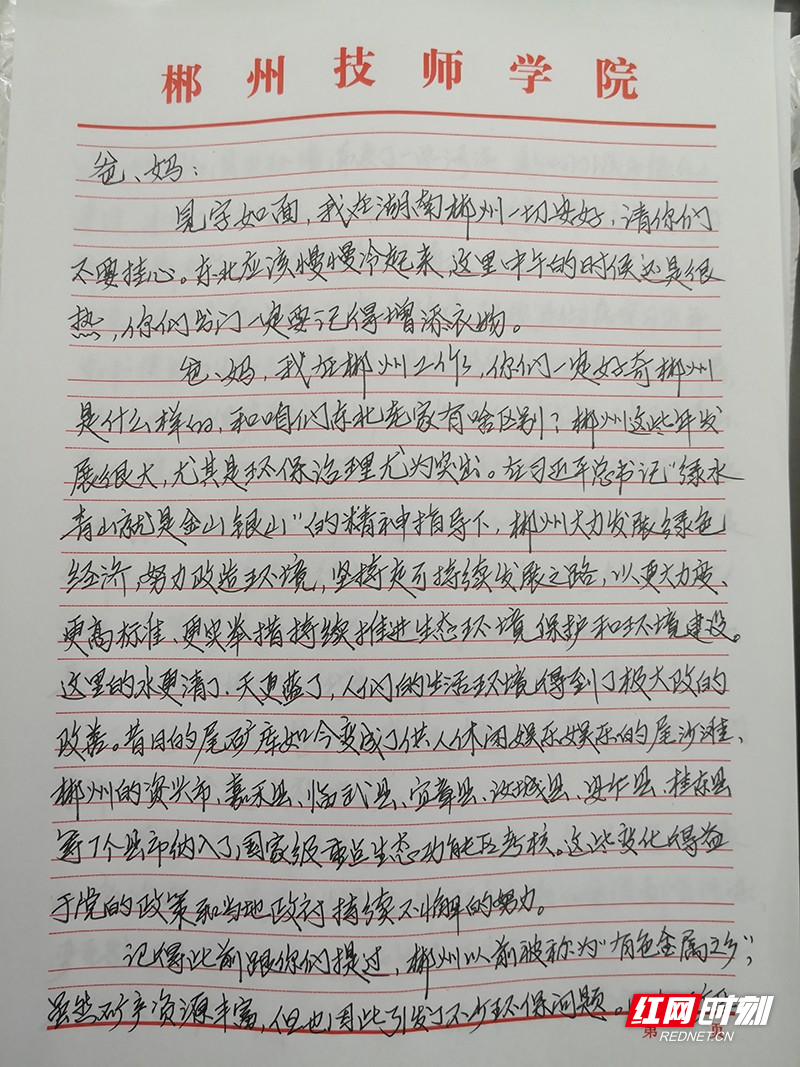 郴州技师学院
爸、妈：
见字如面，我在湖南郴州一切安好，请你们
不要挂心。东北应该慢慢冷起来，这里中午的时候还是很
热，你们出门一定要记得增添衣物。
爸、妈，我在郴州工作，你们一定好奇郴州
是什么样的，和咱们东北老家有啥区别？郴州这些年发
展很大，尤其是环保治理尤为突出。在习近平总书记“绿水
青山就是金山银山”的精神指导下，郴州大力发展绿色
经济，努力改造环境，坚持走可持续发展之路，以更大力度、
更高标准、更实举措持续推进生态环境保护和环境建设。
这里的水更清了、天更蓝了，人们的生活环境得到了极大改的
改善。昔日的尾矿库如今变成了供人休闲娱乐娱乐的尾沙滩、
郴州的资兴市、嘉禾县、临武县、宜章县、汝城县、安仁县、桂东县
等7个县市纳入了国家级重点生态功能区考核。这些变化得益
于党的政策和当地政府持续不懈的努力。
记得此前跟你们提过，郴州以前被称为“有色金属之乡”，
虽然矿产资源丰富，但也因此引发了不少环保问题。
第 页
红网时刻
REDNET.CN